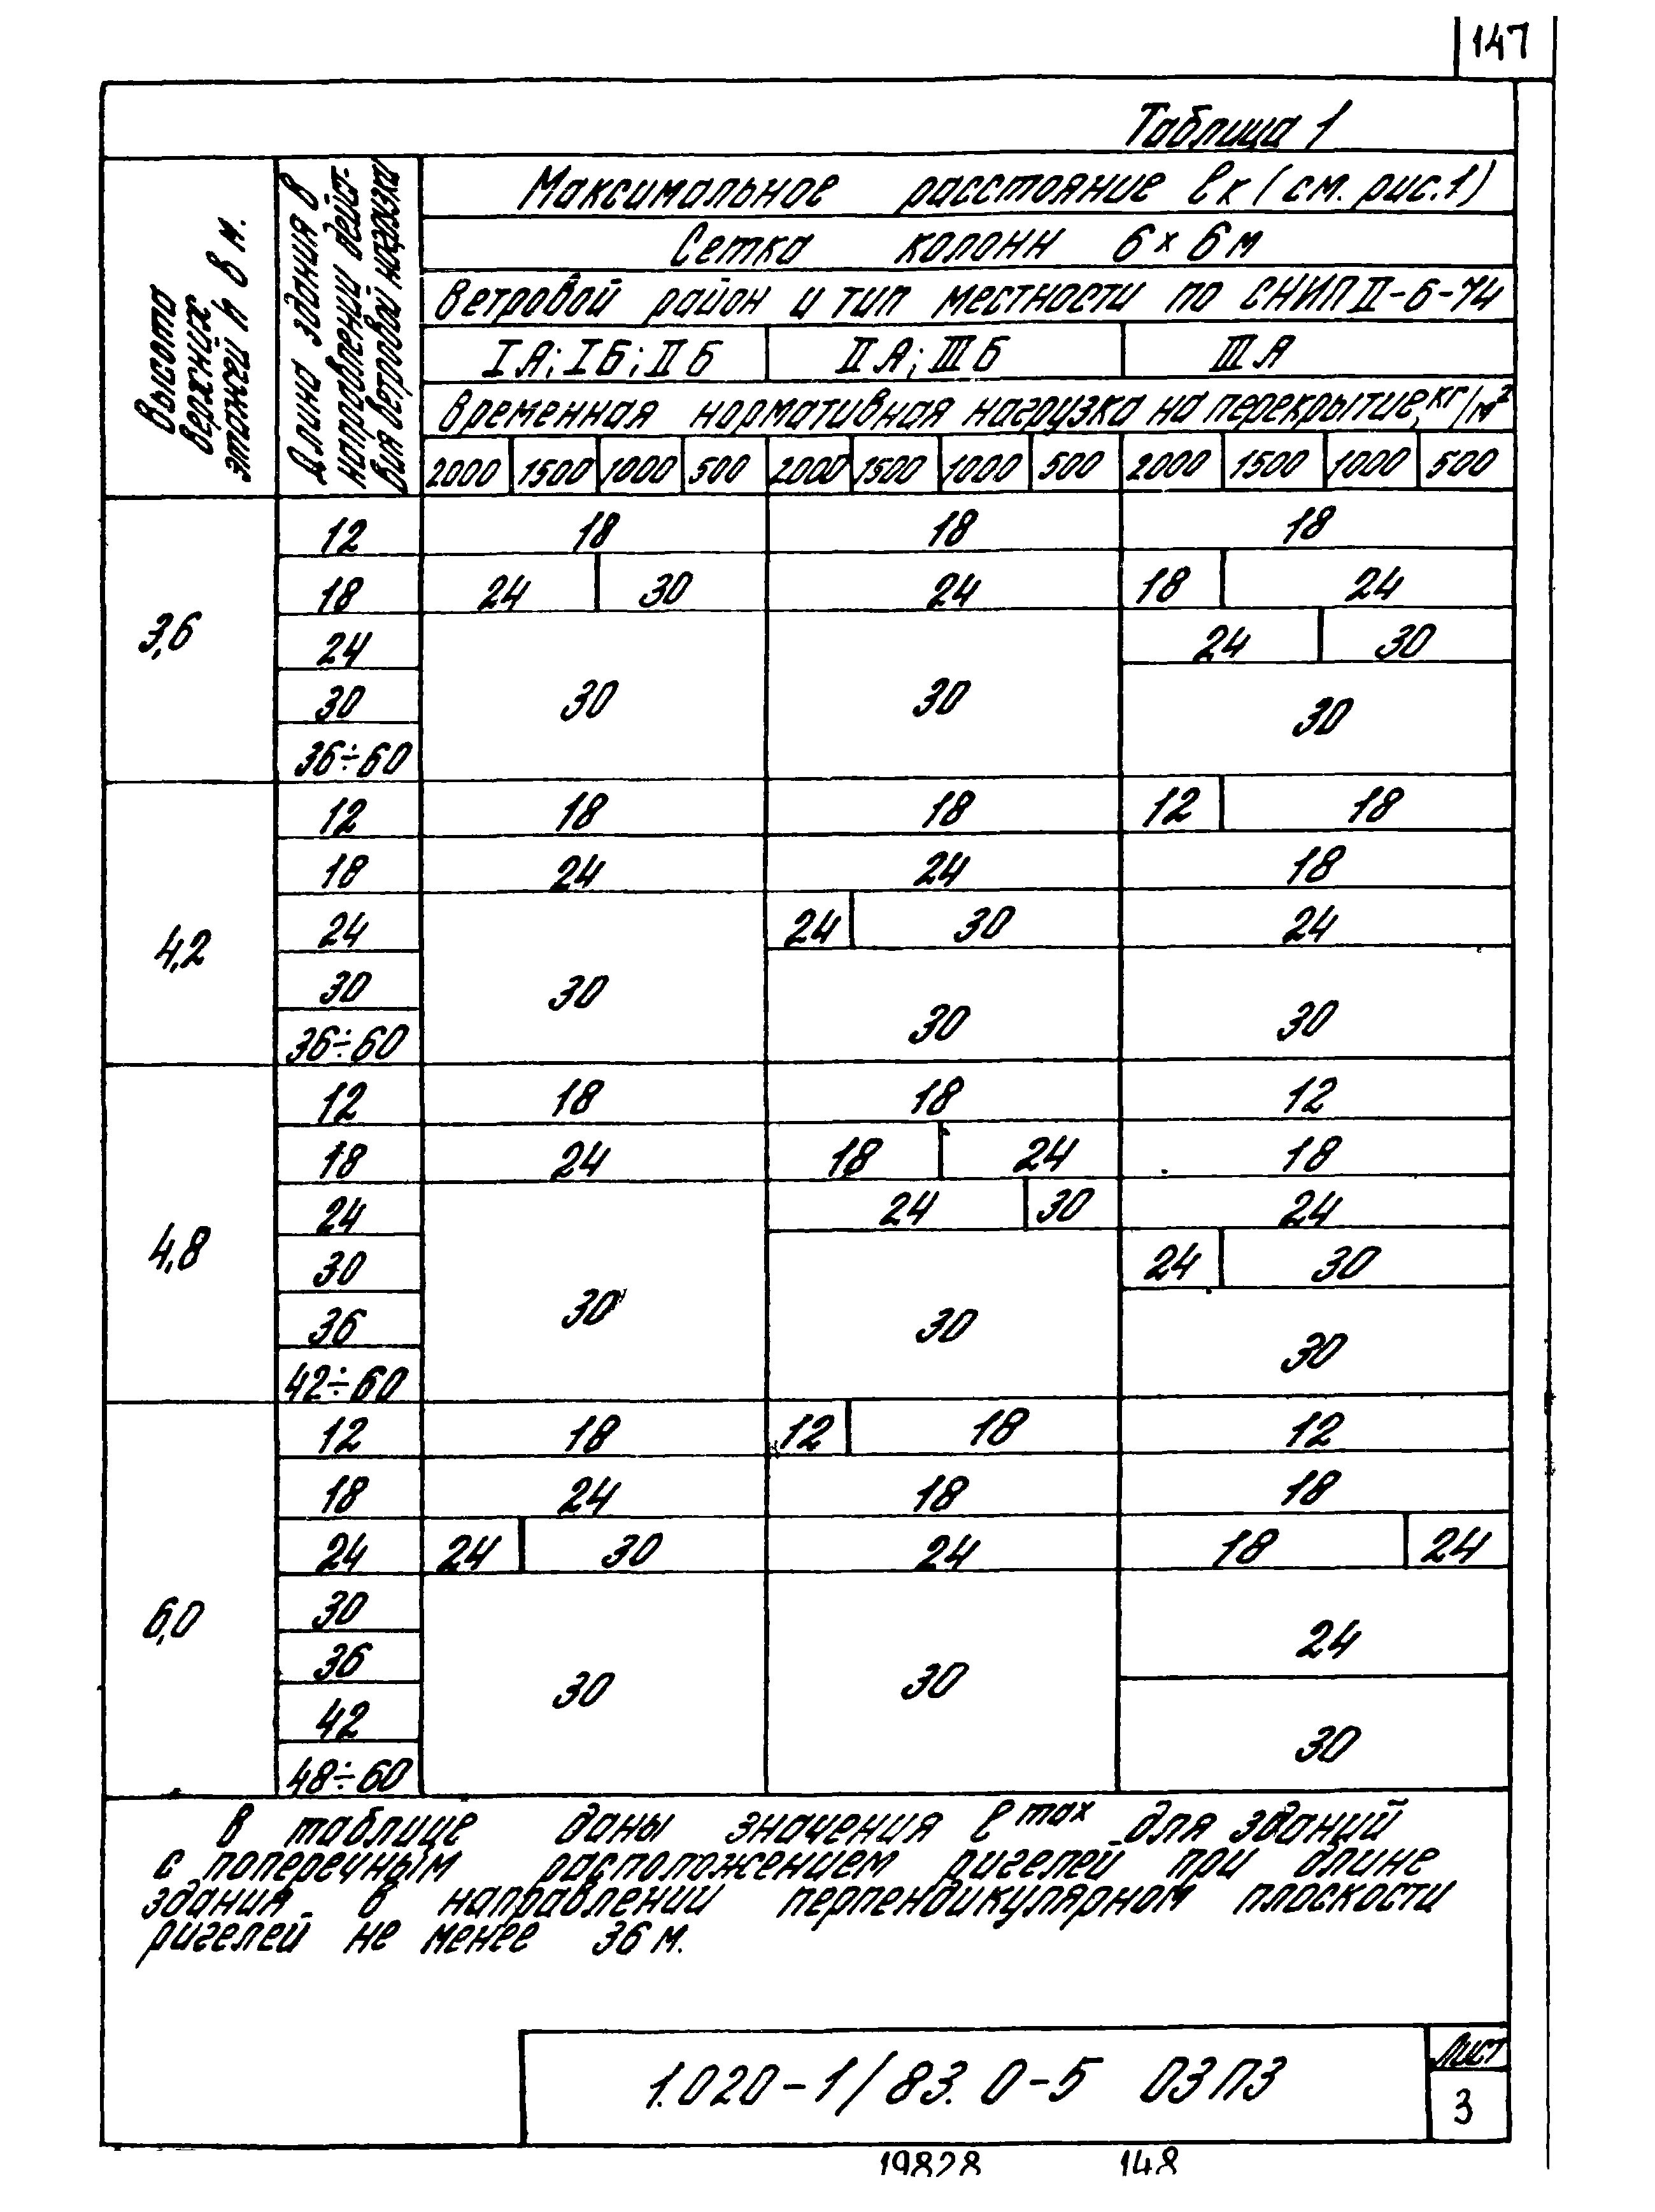 147
Таблица 1
Высота верхних этажей h в м.
Длина здания в направлении действия ветровой нагрузки
Максимальное расстояние ℓк (см. рис.1)
Сетка колонн 6×6м
Ветровой район и тип местности по СНИП II-6-74
IА; IБ; IIБ IIА; IIIБ IIIА
Временная нормативная нагрузка на перекрытие, кг/м²
2000 1500 1000 500 2000 1500 1000 500 2000 1500 1000 500
3,6
12 18 18 18
18 24 30 24 18 24
24 24 30
30 30 30 30
36÷60
4,2
12 18 18 12 18
18 24 24 18
24 24 30 24
30 30 30 30
36÷60
4,8
12 18 18 12
18 24 18 24 18
24 24 30 24
30 24 30
36 30 30 30
42÷60
6,0
12 18 12 18 12
18 24 18 18
24 24 30 24 18 24
30
36 24
42 30 30 30
48÷60
В таблице даны значения ℓ max для зданий
с поперечным расположением ригелей при длине
здания в направлении перпендикулярном плоскости
ригелей не менее 36 м.
1.020-1/83. 0-5 03ПЗ
Лист
3
19828 148